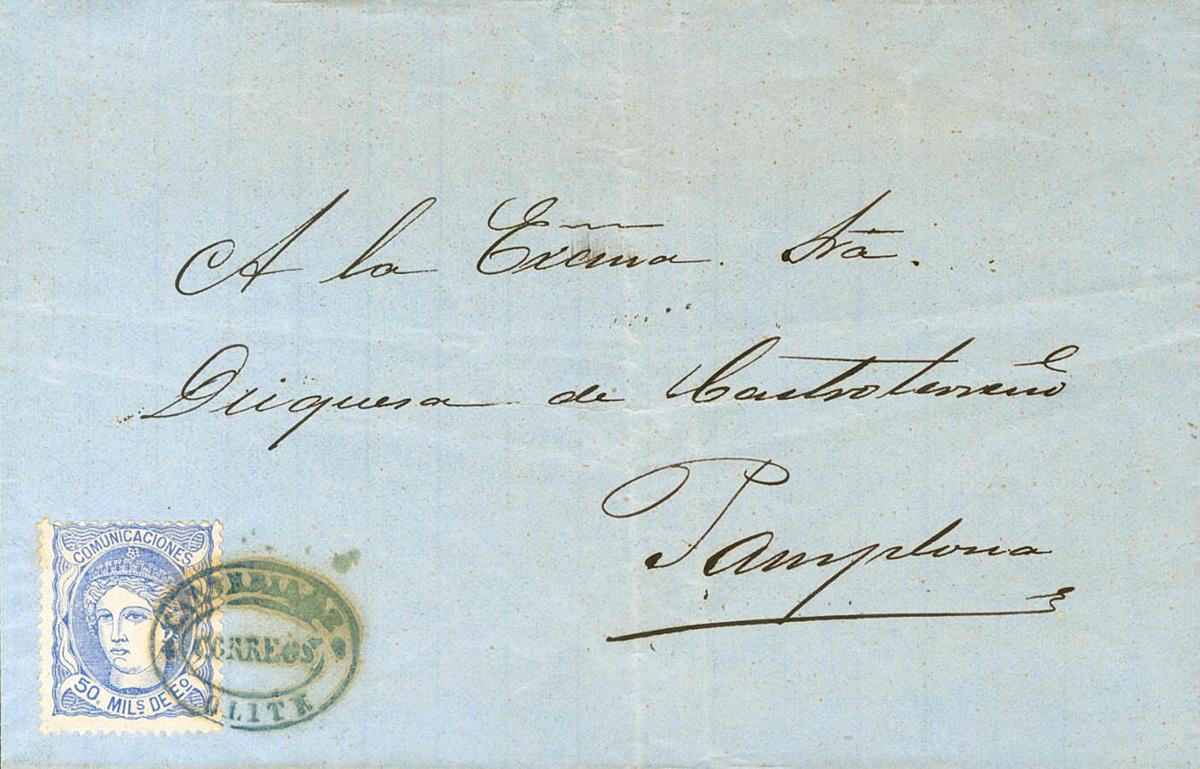 A la Excma. Sra.
Duquesa de Castroterreño
Pamplona
COMUNICACIONES
50. MILS. DE EO.
CORREOS
OLITE